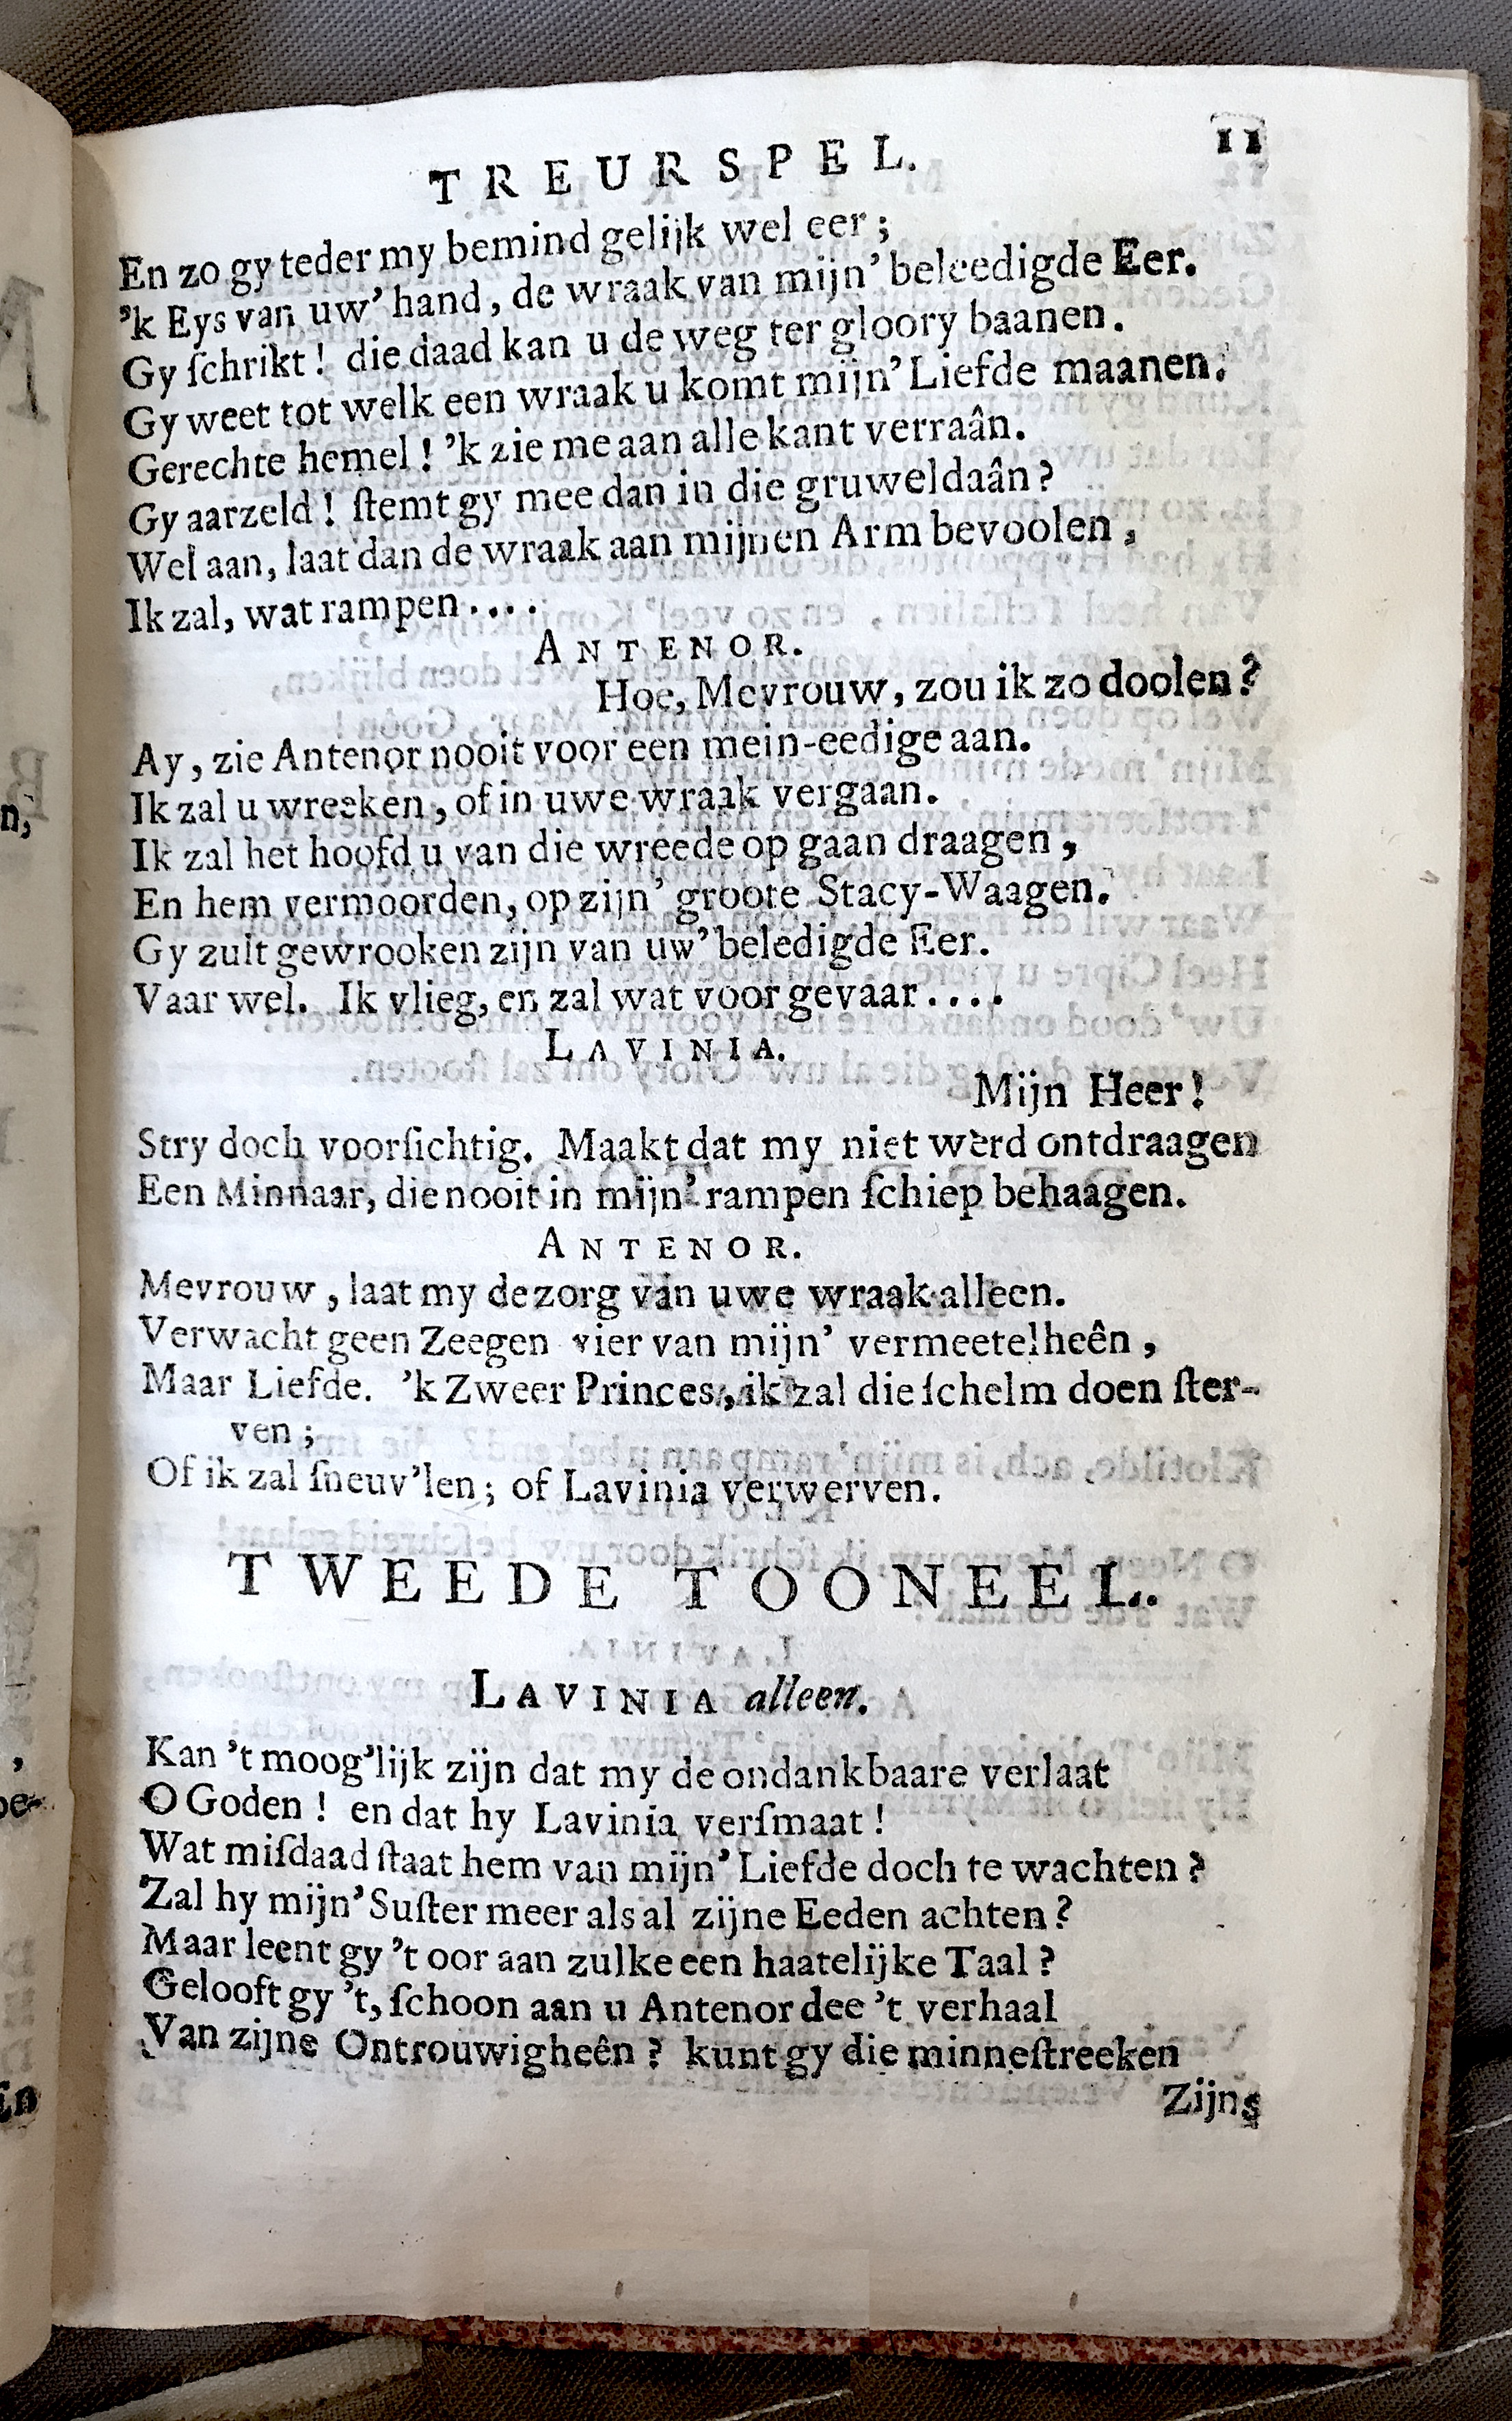 TREURSPEL. 11
En zo gy teder my bemind gelijk wel eer ;
’k Eys van uw’ hand, de wraak van mijn’ beleedigde Eer.
Gy ſchrikt ! die daad kan u de weg ter gloory baanen.
Gy weet tot welk een wraak u komt mijn’ Liefde maanen.
Gerechte hemel ! ’k zie me aan alle kant verraân.
Gy aarzeld ! ſtemt gy mee dan in die gruweldaân ?
Wel aan, laat dan de wraak aan mijnen Arm bevoolen ,
Ik zal, wat rampen . . . .
ANTENOR.
Hoe, Mevrouw, zou ik zo doolen ?
Ay, zie Antenor nooit voor een mein-eedige aan.
Ik zal u wreeken, of in uwe wraak vergaan.
Ik zal het hoofd u van die wreede op gaan draagen ,
En hem vermoorden, op zijn’ groote Stacy-Waagen.
Gy zult gewrooken zijn van uw’ beledigde Eer.
Vaar wel. Ik vlieg, en zal wat voor gevaar . . . .
LAVINIA.
Mijn Heer !
Stry doch voorſichtig. Maakt dat my niet werd ontdraagen
Een Minnaar, die nooit in mijn’ rampen ſchiep behaagen.
ANTENOR.
Mevrouw, laat my de zorg van uwe wraak alleen.
Verwacht geen Zeegen vier van mijn’ vermeetelheên ,
Maar Liefde. ’k Zweer Princes, ik zal die ſchelm doen ſter-
ven ;
Of ik zal ſneuv’len ; of Lavinia verwerven.
TWEEDE TOONEEL.
LAVINIA alleen.
Kan ’t moog’lijk zijn dat my de ondankbaare verlaat
O Goden ! en dat hy Lavinia verſmaat !
Wat miſdaad ſtaat hem van mijn’ Liefde doch te wachten ?
Zal hy mijn’ Suſter meer als al zijne Eeden achten ?
Maar leent gy ’t oor aan zulke een haatelijke Taal ?
Gelooft gy ’t, ſchoon aan u Antenor dee ’t verhaal
Van zijne Ontrouwigheên ? kunt gy die minneſtreeken
Zijns